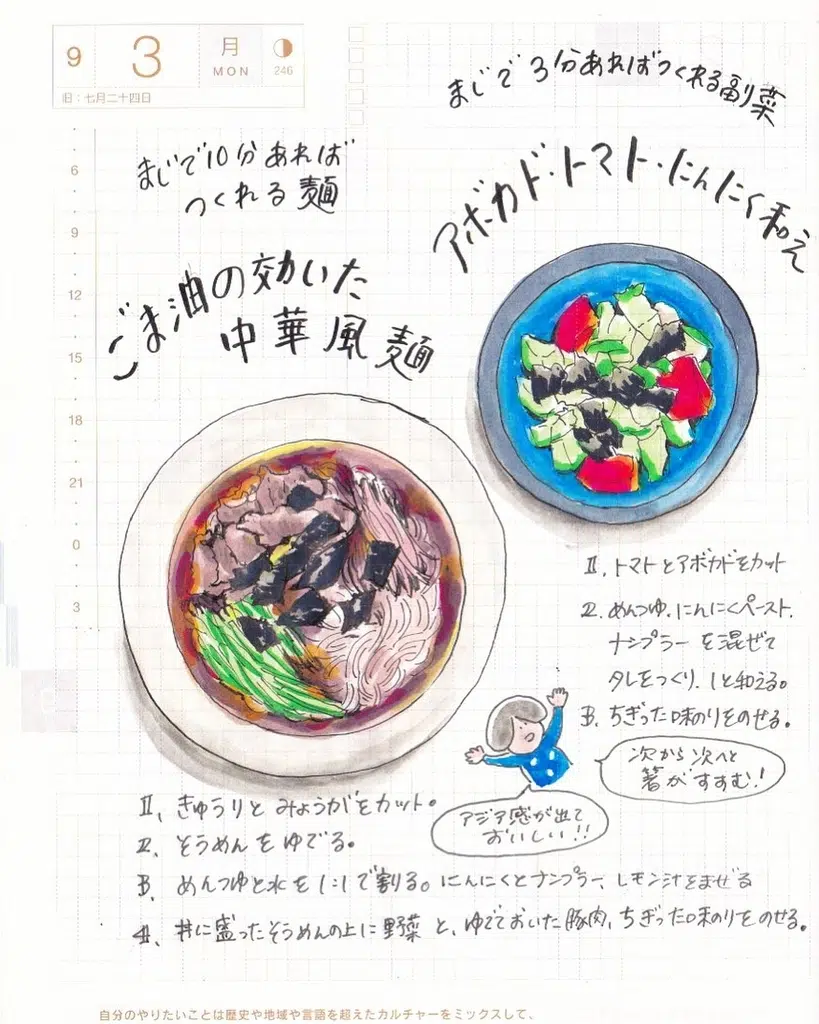 9 3 月 MON 246
旧:七月二十四日
6
9
12
15
18
21
0
3
まじで10分あれば
つくれる麺
ごま油の効いた
中華風麺
まじで3分あればつくれる副菜
アボカド・トマト・にんにく和え
1. トマトとアボカドをカット
2. めんつゆ、にんにくペースト、
ナンプラーを混ぜて
タレをつくり、1と和える。
3. ちぎった味のりをのせる。
次から次へと
箸がすすむ!
アジア感が出て
おいしい!!
1. きゅうりとみょうがをカット。
2. そうめんをゆでる。
3. めんつゆと水を1:1で割る。にんにくとナンプラー、レモン汁をまぜる
4. 丼に盛ったそうめんの上に野菜と、ゆでておいた豚肉、ちぎった味のりをのせる。
自分のやりたいことは歴史や地域や言語を超えたカルチャーをミックスして、